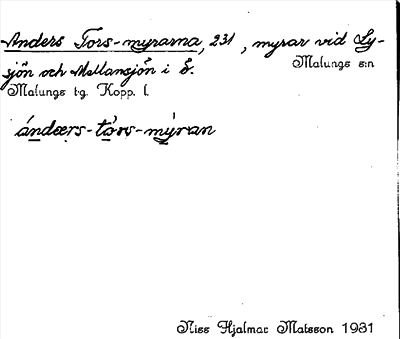 Anders Tors-myrarna, 231, myrar vid Ly-
sjön och Mellansjön i S.
Malungs s:n
Malungs tg. Kopp. l.
ánders-tòrs-mýran
Niss Hjalmar Matsson 1931